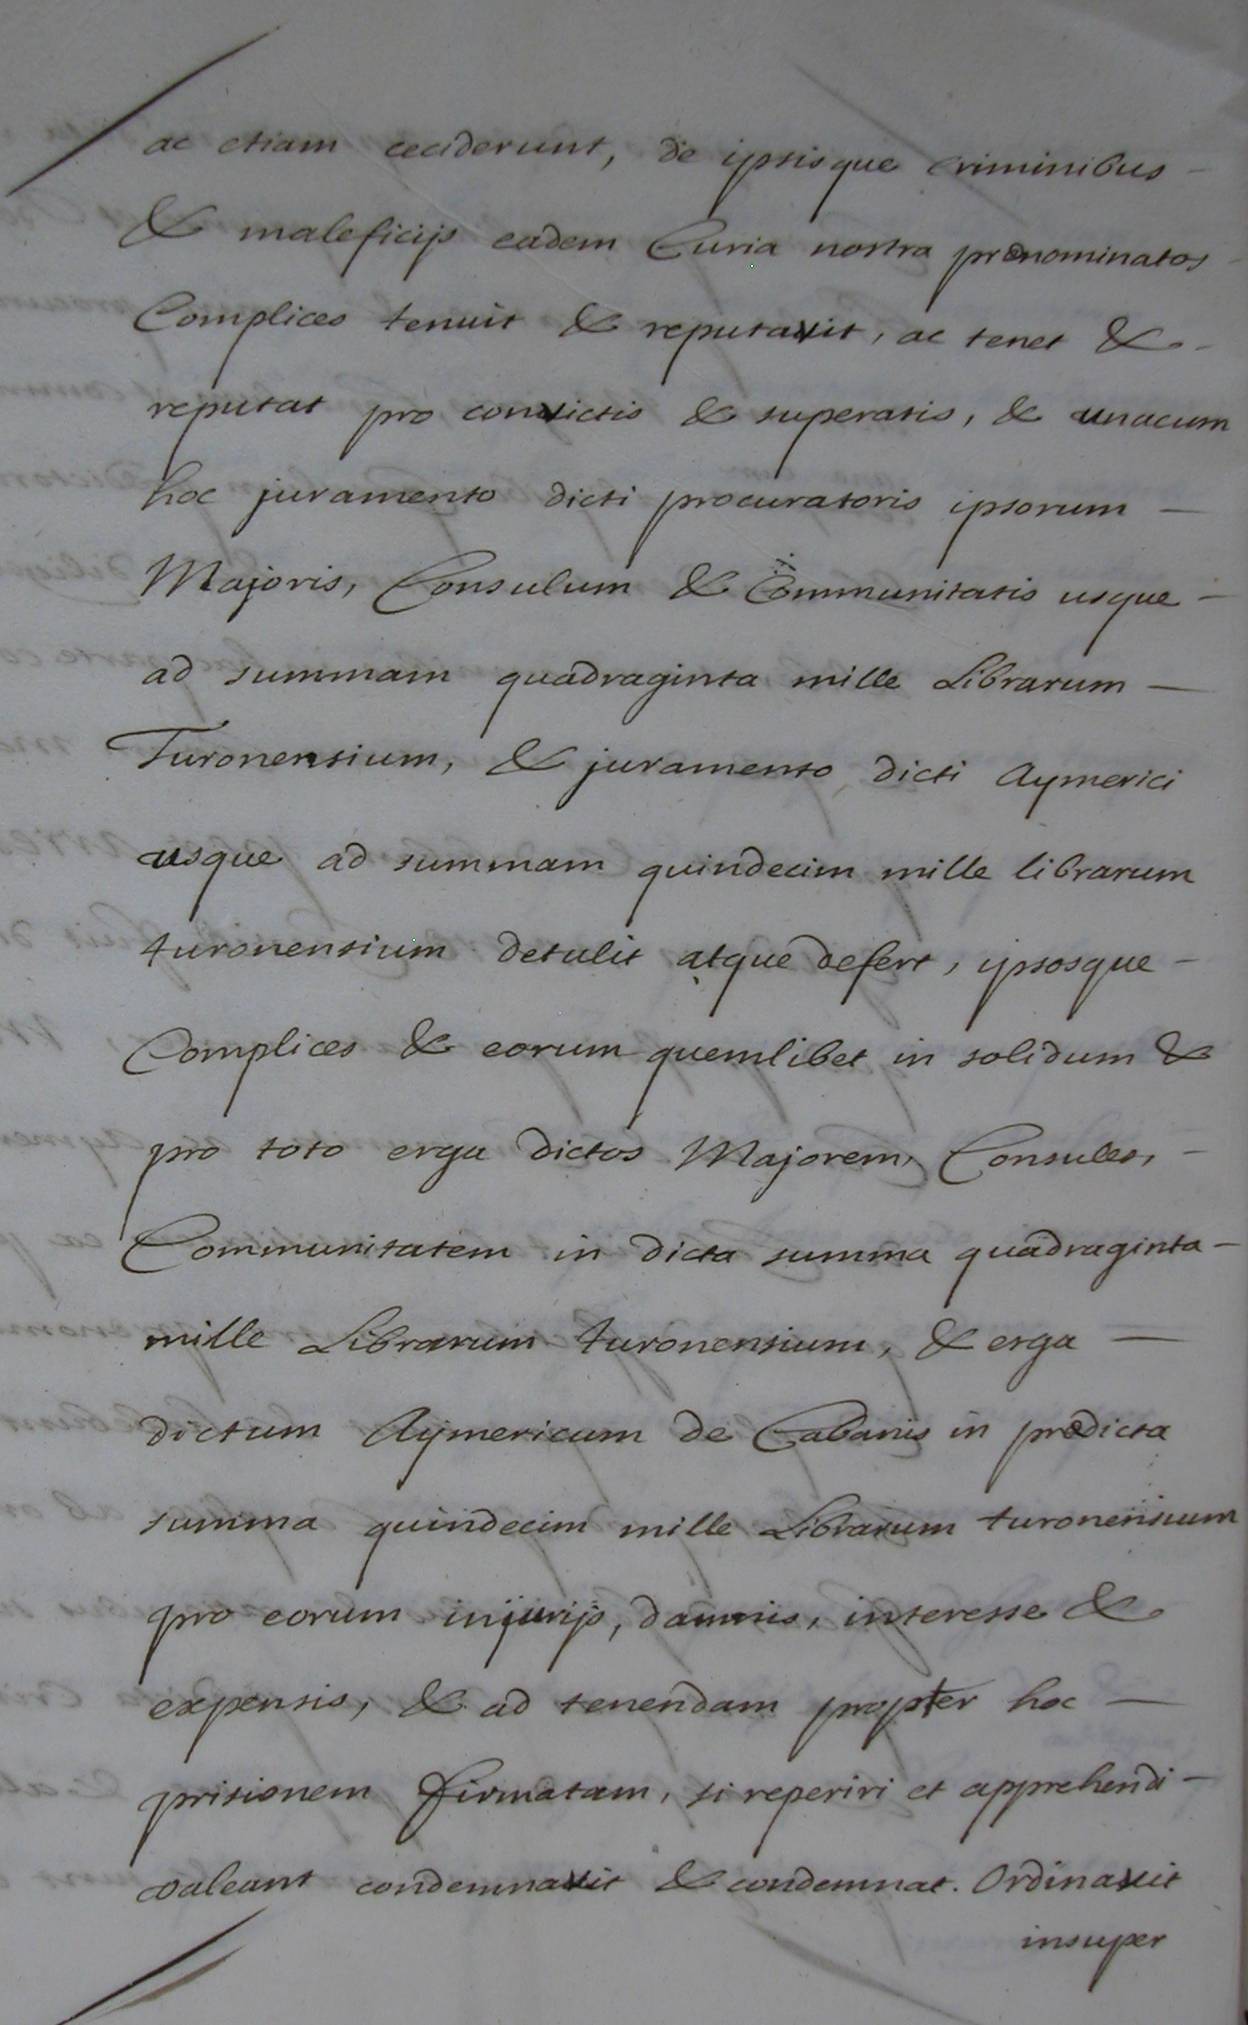 ac etiam ceciderunt, de ipsisque criminibus -
& maleficijs eadem Curia nostra prænominatos -
Complices tenuit & reputavit, ac tenet & -
reputat pro convictis & superatis, & unacum
hoc juramento dicti procuratoris ipsorum —
Majoris, Consulum & Communitatis usque -
ad summam quadraginta mille Librarum —
Turonensium, & juramento dicti Aymerici
usque ad summam quindecim mille librarum
turonensium detulit atque defert, ipsosque -
Complices & eorum quemlibet in solidum &
pro toto erga dictos Majorem, Consules, -
Communitatem in dicta summa quadraginta -
mille Librarum turonensium, & erga —
dictum Aymericum de Cabanis in prædicta
summa quindecim mille Librarum turonensium
pro eorum injurijs, damnis, interesse &
expensis, & ad tenendam propter hoc —
prisionem firmatam, si reperiri et apprehendi -
valeant condemnavit & condemnat. Ordinavit
insuper